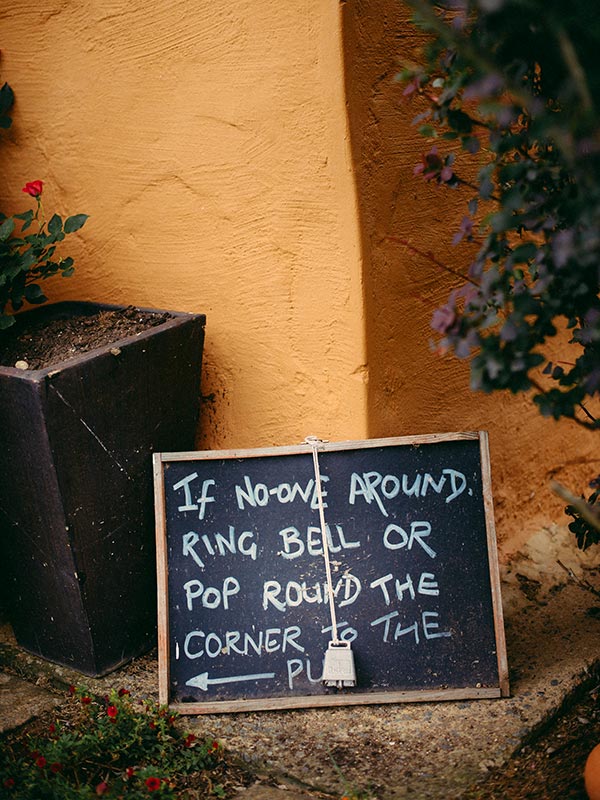 IF NO-ONE AROUND.
RING BELL OR
POP ROUND THE
CORNER TO THE